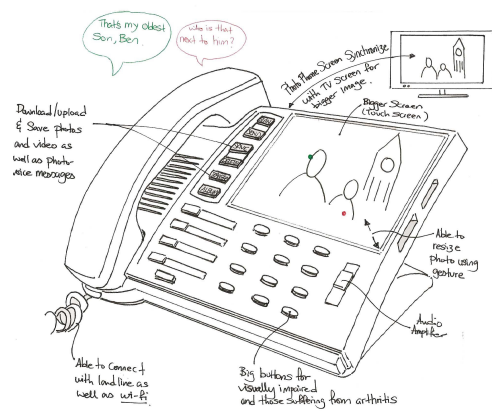 That's my oldest
Son, Ben.
who is that
next to him?
Photo Phone Screen Synchronize
with TV Screen for
bigger image.
Bigger Screen
(Touch Screen)
Download/upload
& Save photos
and video as
well as photo-
voice messages
Able to
resize
photo using
gesture
Audio
Amplifier
Able to Connect
with landline as
well as wi-fi.
Big buttons for
visually impaired
and those suffering from arthritis